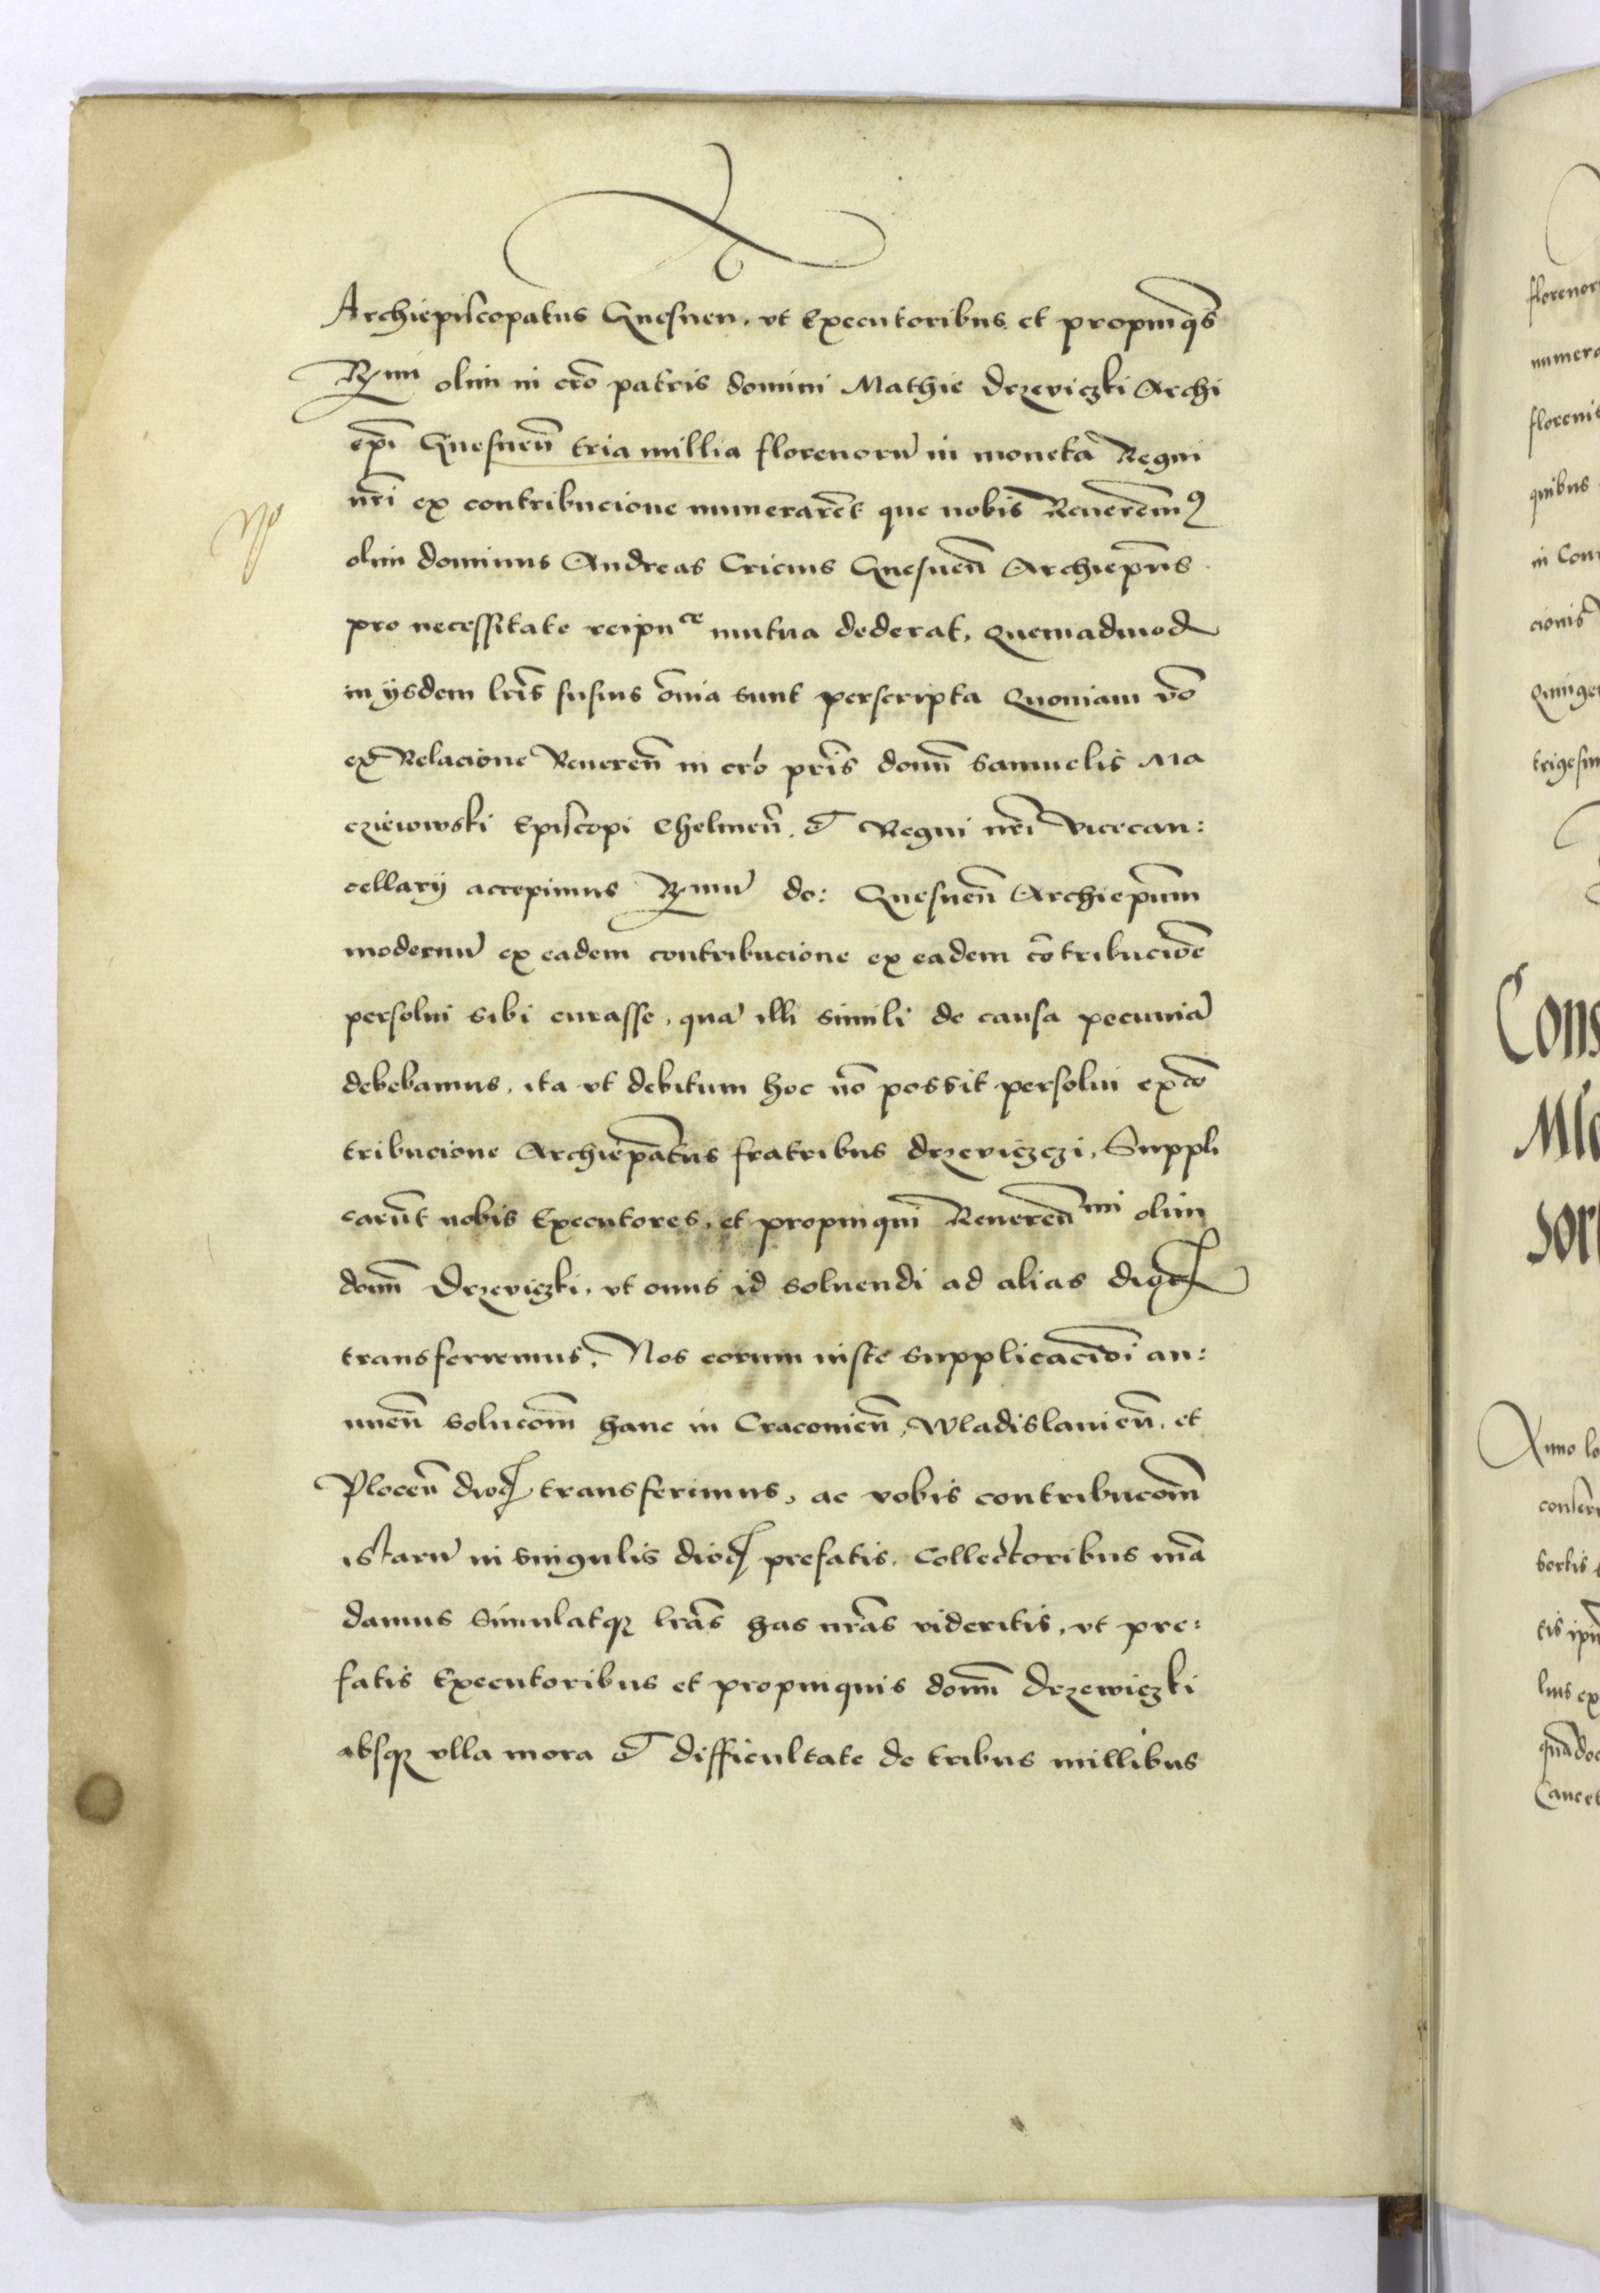 Archiepiscopatus Gnesnen. vt Executoribus et propinq̄s
R̃mi olim in cr̃o patris domini Mathie Drzeviczki Archi
ep̄i Gnesneñ tria millia florenorũ in moneta Regni
nr̃i ex contribucione numerarẽt que nobis Reuerẽmꝰ
No
olim dominus Andreas Cricius Gnesneñ Archiep̄us
pro necessitate reipu^ce mutua dederat, quemadmod
in ijsdem lr̃is fusius õnia sunt perscripta Quoniam v̄o
ex Relacione Reuereñ in cr̃o pr̃is domñ Samuelis Ma
cziewski Episcopi Chelmeñ. et Regni nr̃i vicecan:
cellarij accepimus R̃mũ do: Gnesneñ Archiep̄um
modernũ ex eadem contribucione ex eadem cõtribuciõe
persolui sibi curasse, quã illi simili de causa pecuniã
debebamus, ita vt debitum hoc nõ possit persolui ex cõ
tribucione Archiep̄atus fratribus drzeviczczi, Suppli
carũt nobis Executores, et propinqui Reuereñ^mi olim
domñ Drzeviczki, vt onus id soluendi ad alias dioc̄
transferremus, Nos eorum iuste supplicaciõi an:
nueñ soluc̃om̃ hanc in Cracouieñ, Wladislauieñ. et
Ploceñ dioc̄ transferimus, ac vobis contribuc̃om̃
istarũ in singulis dioc̄ prefatis, Collectoribus mã
damus simulatqꝫ lr̃as has nr̃as videritis, vt pre:
fatis Executoribus et propinquis domñ Drzewiczki
absqꝫ vlla mora et difficultate de tribus millibus
Cons
sort